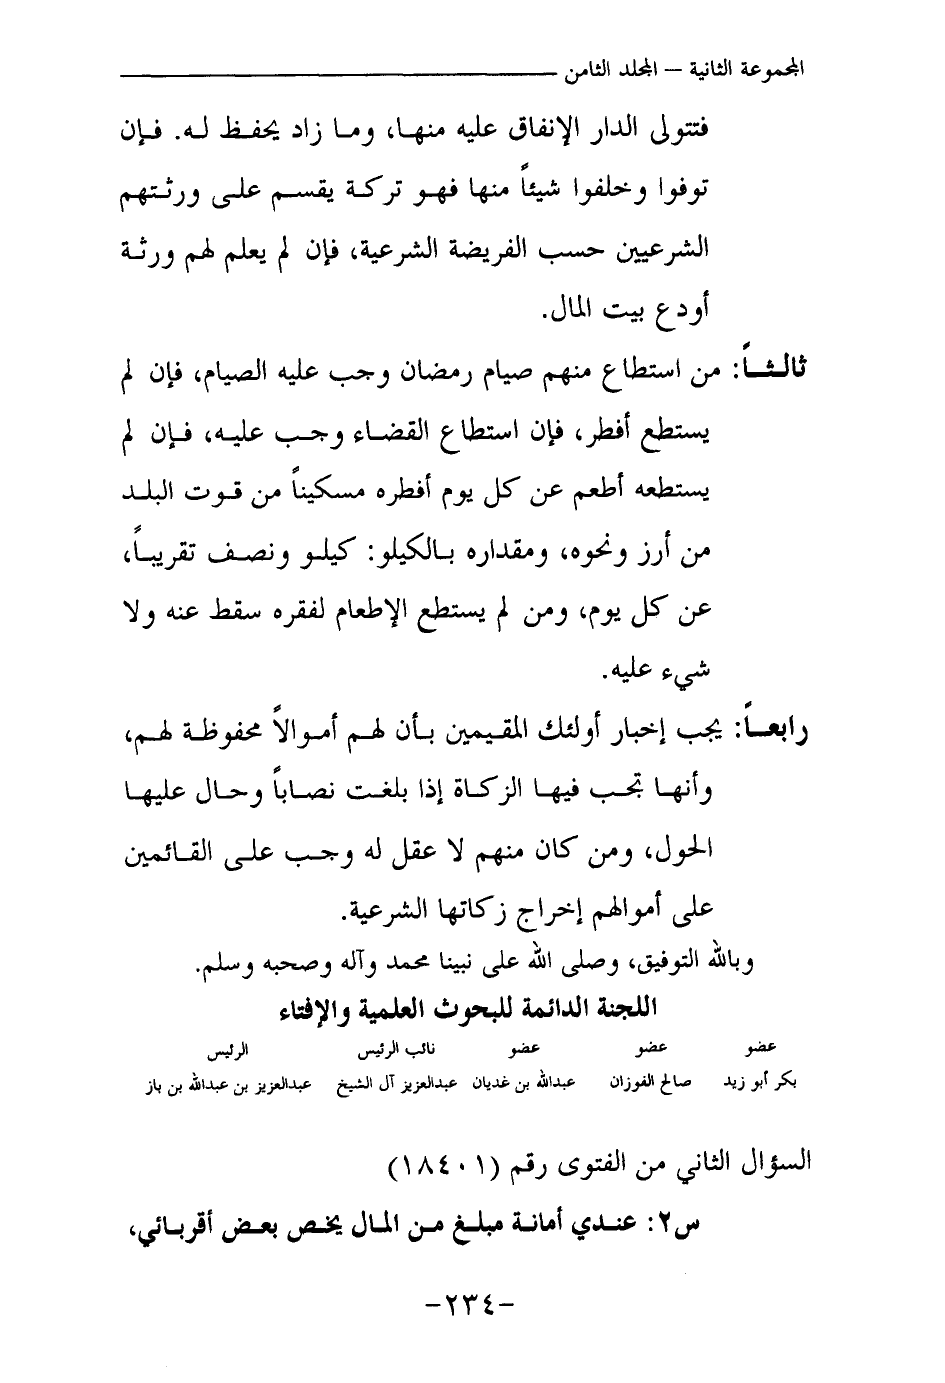 المجموعة الثانية – المجلد الثامن
فتتولى الدار الإنفاق عليه منها، وما زاد يحفظ له. فإن
توفوا وخلفوا شيئاً منها فهو تركة يقسم على ورثتهم
الشرعيين حسب الفريضة الشرعية، فإن لم يعلم لهم ورثة
أودع بيت المال.
ثالثاً: من استطاع منهم صيام رمضان وجب عليه الصيام، فإن لم
يستطع أفطر، فإن استطاع القضاء وجب عليه، فإن لم
يستطعه أطعم عن كل يوم أفطره مسكيناً من قوت البلد
من أرز ونحوه، ومقداره بالكيلو: كيلو ونصف تقريباً،
عن كل يوم، ومن لم يستطع الإطعام لفقره سقط عنه ولا
شيء عليه.
رابعاً: يجب إخبار أولئك المقيمين بأن لهم أموالاً محفوظة لهم،
وأنها تجب فيها الزكاة إذا بلغت نصاباً وحال عليها
الحول، ومن كان منهم لا عقل له وجب على القائمين
على أموالهم إخراج زكاتها الشرعية.
وبالله التوفيق، وصلى الله على نبينا محمد وآله وصحبه وسلم.
اللجنة الدائمة للبحوث العلمية والإفتاء
عضو عضو عضو نائب الرئيس الرئيس
بكر أبو زيد صالح الفوزان عبدالله بن غديان عبدالعزيز آل الشيخ عبدالعزيز بن عبدالله بن باز
السؤال الثاني من الفتوى رقم (١٨٤٠١)
س٢: عندي أمانة مبلغ من المال يخص بعض أقربائي،
-٢٣٤-